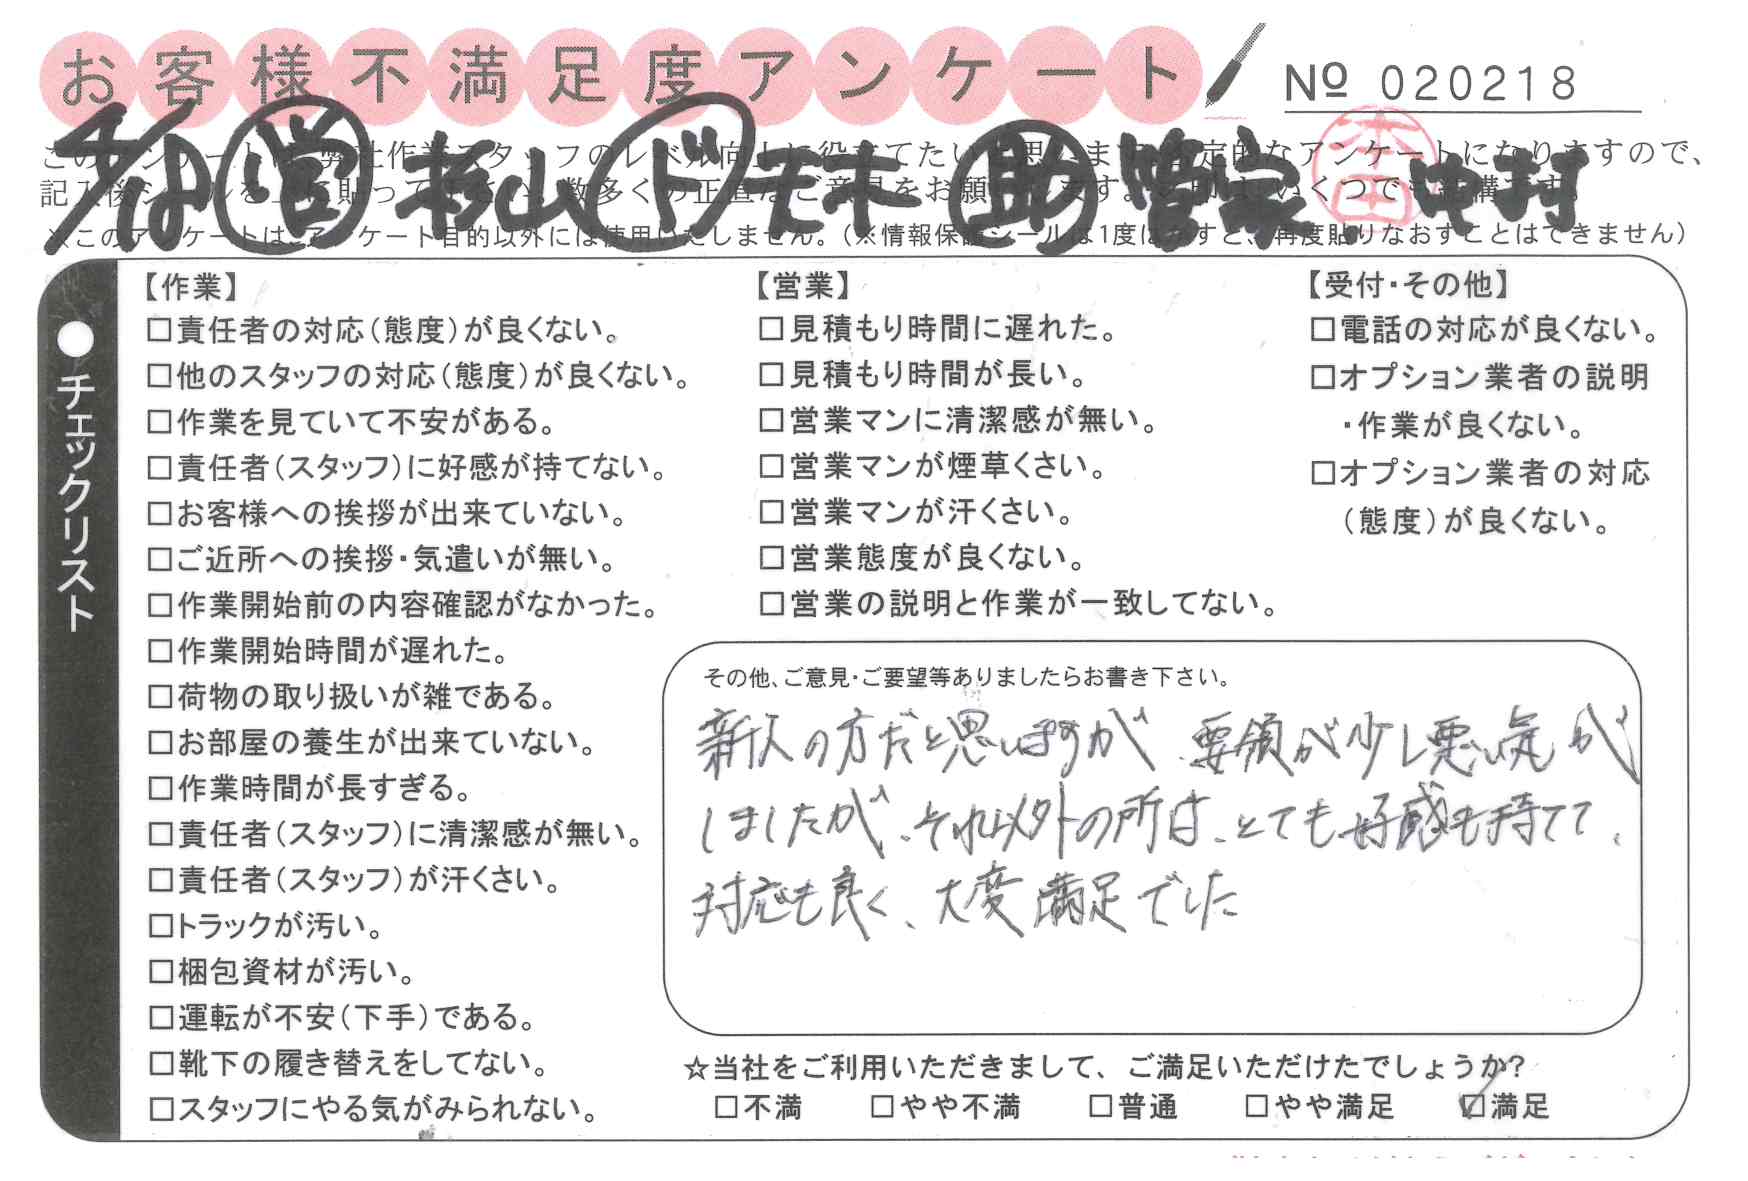 お客様不満足度アンケート
№ 020218
営 杉山 ド 茂木 助 菅家 中村
本田
※このアンケートは、アンケート目的以外には使用いたしません。（※情報保護シールは1度はがすと、再度貼りなおすことはできません）
●チェックリスト
【作業】
□責任者の対応（態度）が良くない。
□他のスタッフの対応（態度）が良くない。
□作業を見ていて不安がある。
□責任者（スタッフ）に好感が持てない。
□お客様への挨拶が出来ていない。
□ご近所への挨拶・気遣いが無い。
□作業開始前の内容確認がなかった。
□作業開始時間が遅れた。
□荷物の取り扱いが雑である。
□お部屋の養生が出来ていない。
□作業時間が長すぎる。
□責任者（スタッフ）に清潔感が無い。
□責任者（スタッフ）が汗くさい。
□トラックが汚い。
□梱包資材が汚い。
□運転が不安（下手）である。
□靴下の履き替えをしてない。
□スタッフにやる気がみられない。
【営業】
□見積もり時間に遅れた。
□見積もり時間が長い。
□営業マンに清潔感が無い。
□営業マンが煙草くさい。
□営業マンが汗くさい。
□営業態度が良くない。
□営業の説明と作業が一致してない。
【受付・その他】
□電話の対応が良くない。
□オプション業者の説明
・作業が良くない。
□オプション業者の対応
（態度）が良くない。
その他、ご意見・ご要望等ありましたらお書き下さい。
新人の方だと思いますが、要領が少し悪い気が
しましたが、それ以外の所は、とても好感も持てて、
対応も良く、大変満足でした
☆当社をご利用いただきまして、ご満足いただけたでしょうか?
□不満 □やや不満 □普通 □やや満足 ☑満足